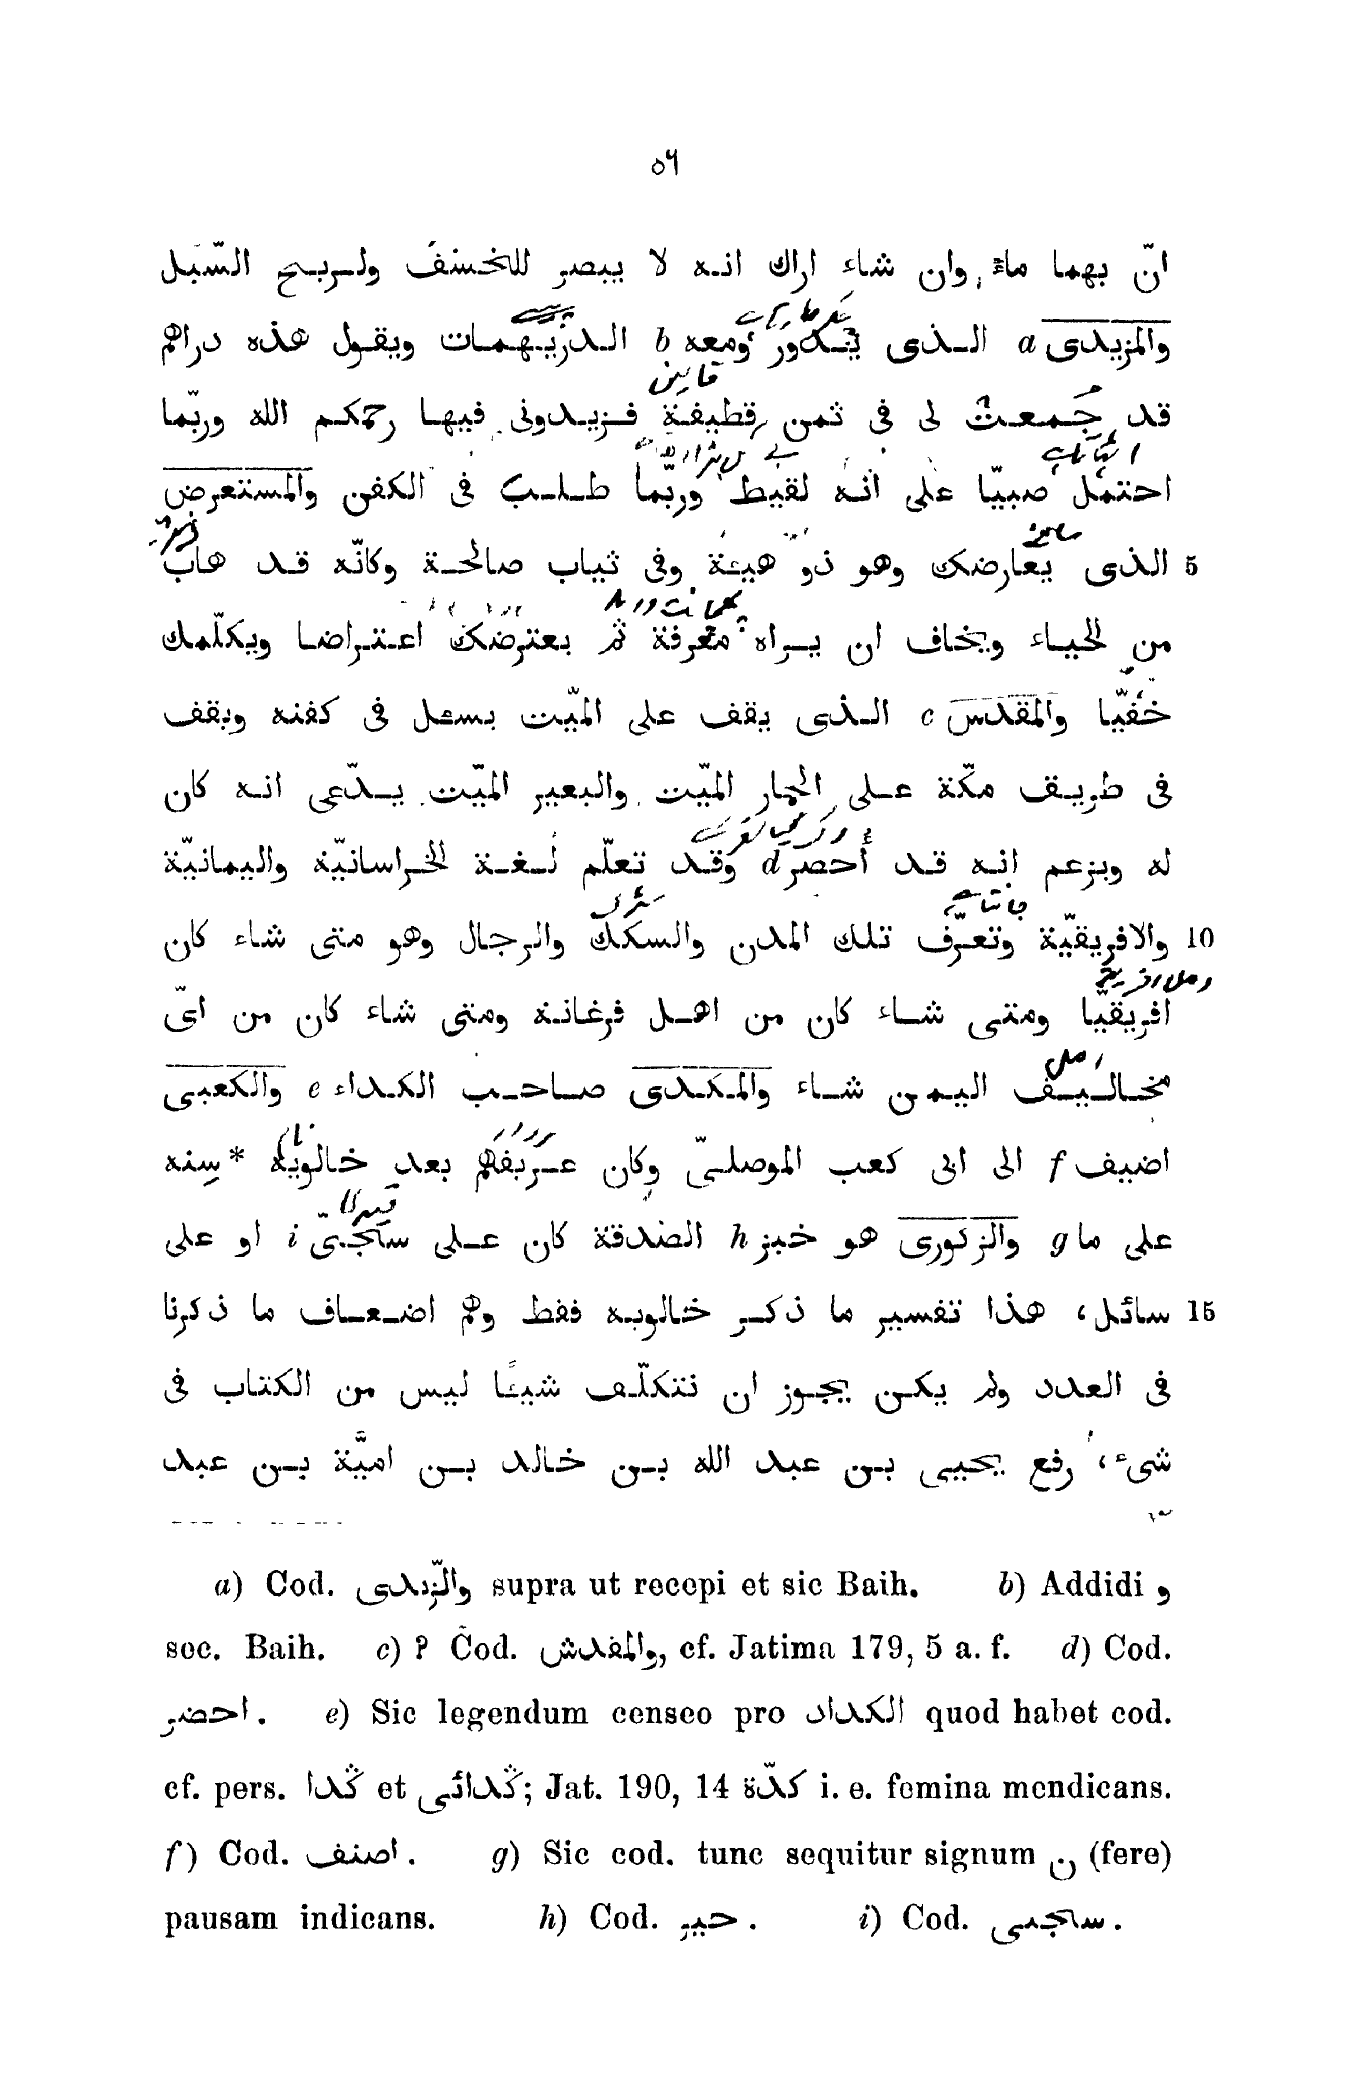 ٥٦
انّ بهما ماءً وان شاء اراك انه لا يبصر للخسف ولريح السَّبَل
والمزيدى a الذى يدور ومعه b الدُرَيْهمات ويقول هذه دراهم
قد جُمعتْ لى فى ثمن قطيفة فزيدونى فيها رحمكم الله وربّما
احتمل صبيّا على انه لقيط وربّما طلب فى الكفن والمستعرض
5 الذى يعارضك وهو ذو هيئة وفى ثياب صالحة وكانّه قد هاب
من الحياء ويخاف ان يراه معرفة ثم يعترضك اعتراضا ويكلّمك
خفيّا والمقدس c الذى يقف على الميّت يسئل فى كفنه ويقف
فى طريق مكّة على الحمار الميّت والبعير الميّت يدّعى انه كان
له ويزعم انه قد أحصر d وقد تعلّم لغة الخراسانيّة واليمانيّة
10 والافريقيّة وتعرّف تلك المدن والسكك والرجال وهو متى شاء كان
افريقيا ومتى شاء كان من اهل فرغانة ومتى شاء كان من اىّ
مخاليف اليمن شاء والمكدى صاحب الكداء e والكعبى
اضيف f الى ابى كعب الموصلىّ وكان عريفهم بعد خالويه * سنه
على ما g والزكورى هو خبز h الصدقة كان على سجى i او على
15 سائل، هذا تفسير ما ذكر خالويه فقط وهم اضعاف ما ذكرنا
فى العدد ولم يكن يجوز ان نتكلّف شيئًا ليس من الكتاب فى
شىء، رفع يحيى بن عبد الله بن خالد بن اميّة بن عبد
a) Cod. والتّزيدى supra ut recepi et sic Baih. b) Addidi و
sec. Baih. c) ? Cod. والمفدش, cf. Jatima 179, 5 a. f. d) Cod.
احضر. e) Sic legendum censeo pro الكداد quod habet cod.
cf. pers. گدا et گدائى; Jat. 190, 14 كدّة i. e. femina mendicans.
f) Cod. اصنف. g) Sic cod. tunc sequitur signum ن (fere)
pausam indicans. h) Cod. حبر. i) Cod. سجى.